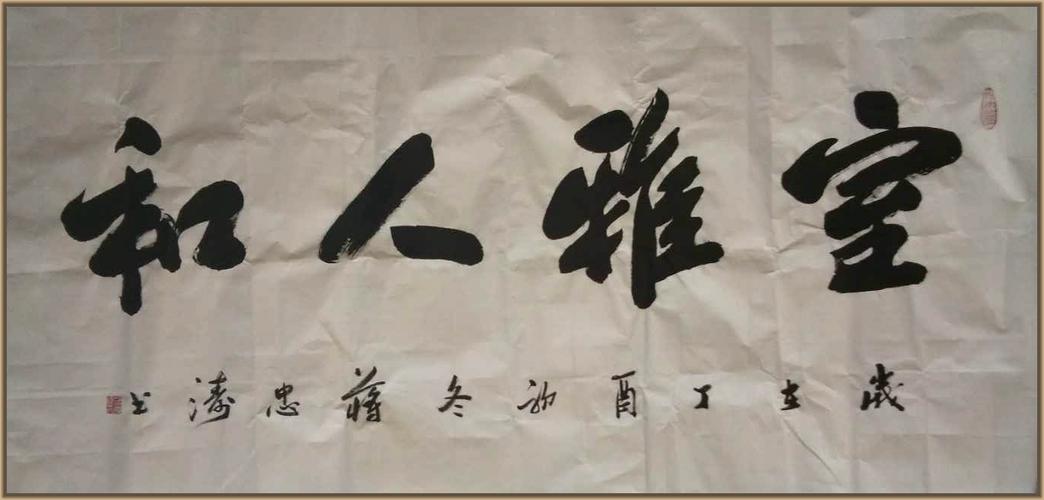 室雅人和
岁在丁酉初冬蒋忠涛书